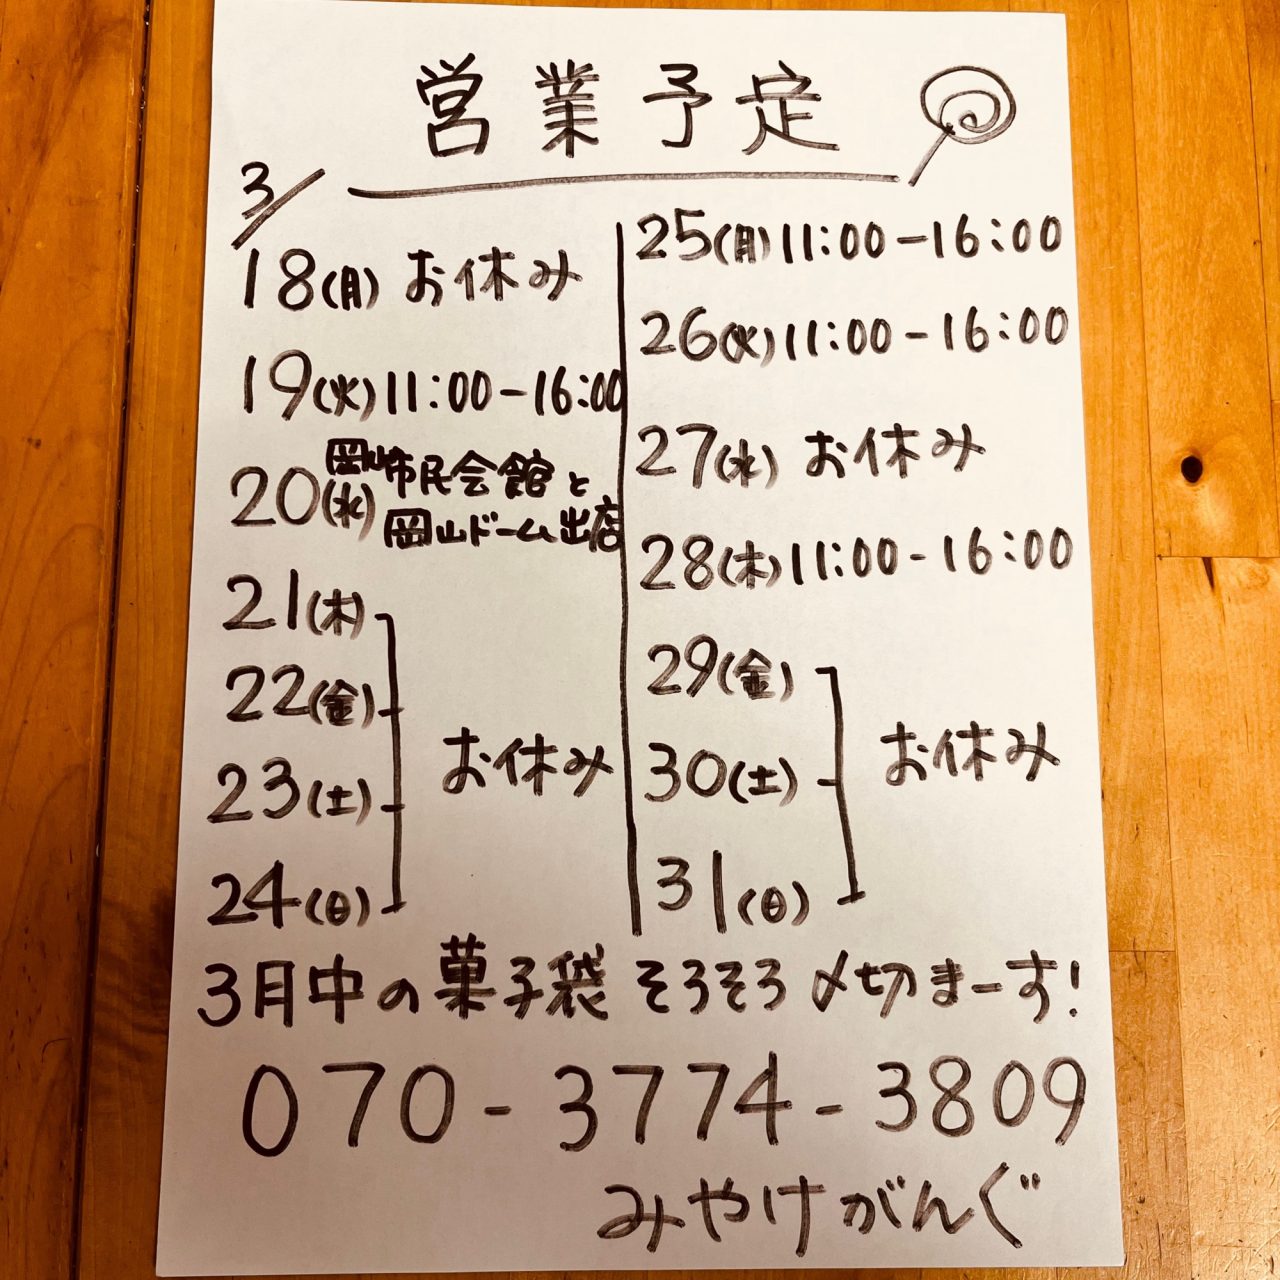 営業予定
3/
18(月) お休み
19(火) 11:00-16:00
20(水) 岡山市民会館と
岡山ドーム出店
21(木)
22(金)
23(土)
24(日)
お休み
25(月) 11:00-16:00
26(火) 11:00-16:00
27(水) お休み
28(木) 11:00-16:00
29(金)
30(土)
31(日)
お休み
3月中の菓子袋 そろそろ〆切まーす!
070-3774-3809
みやけがんぐ